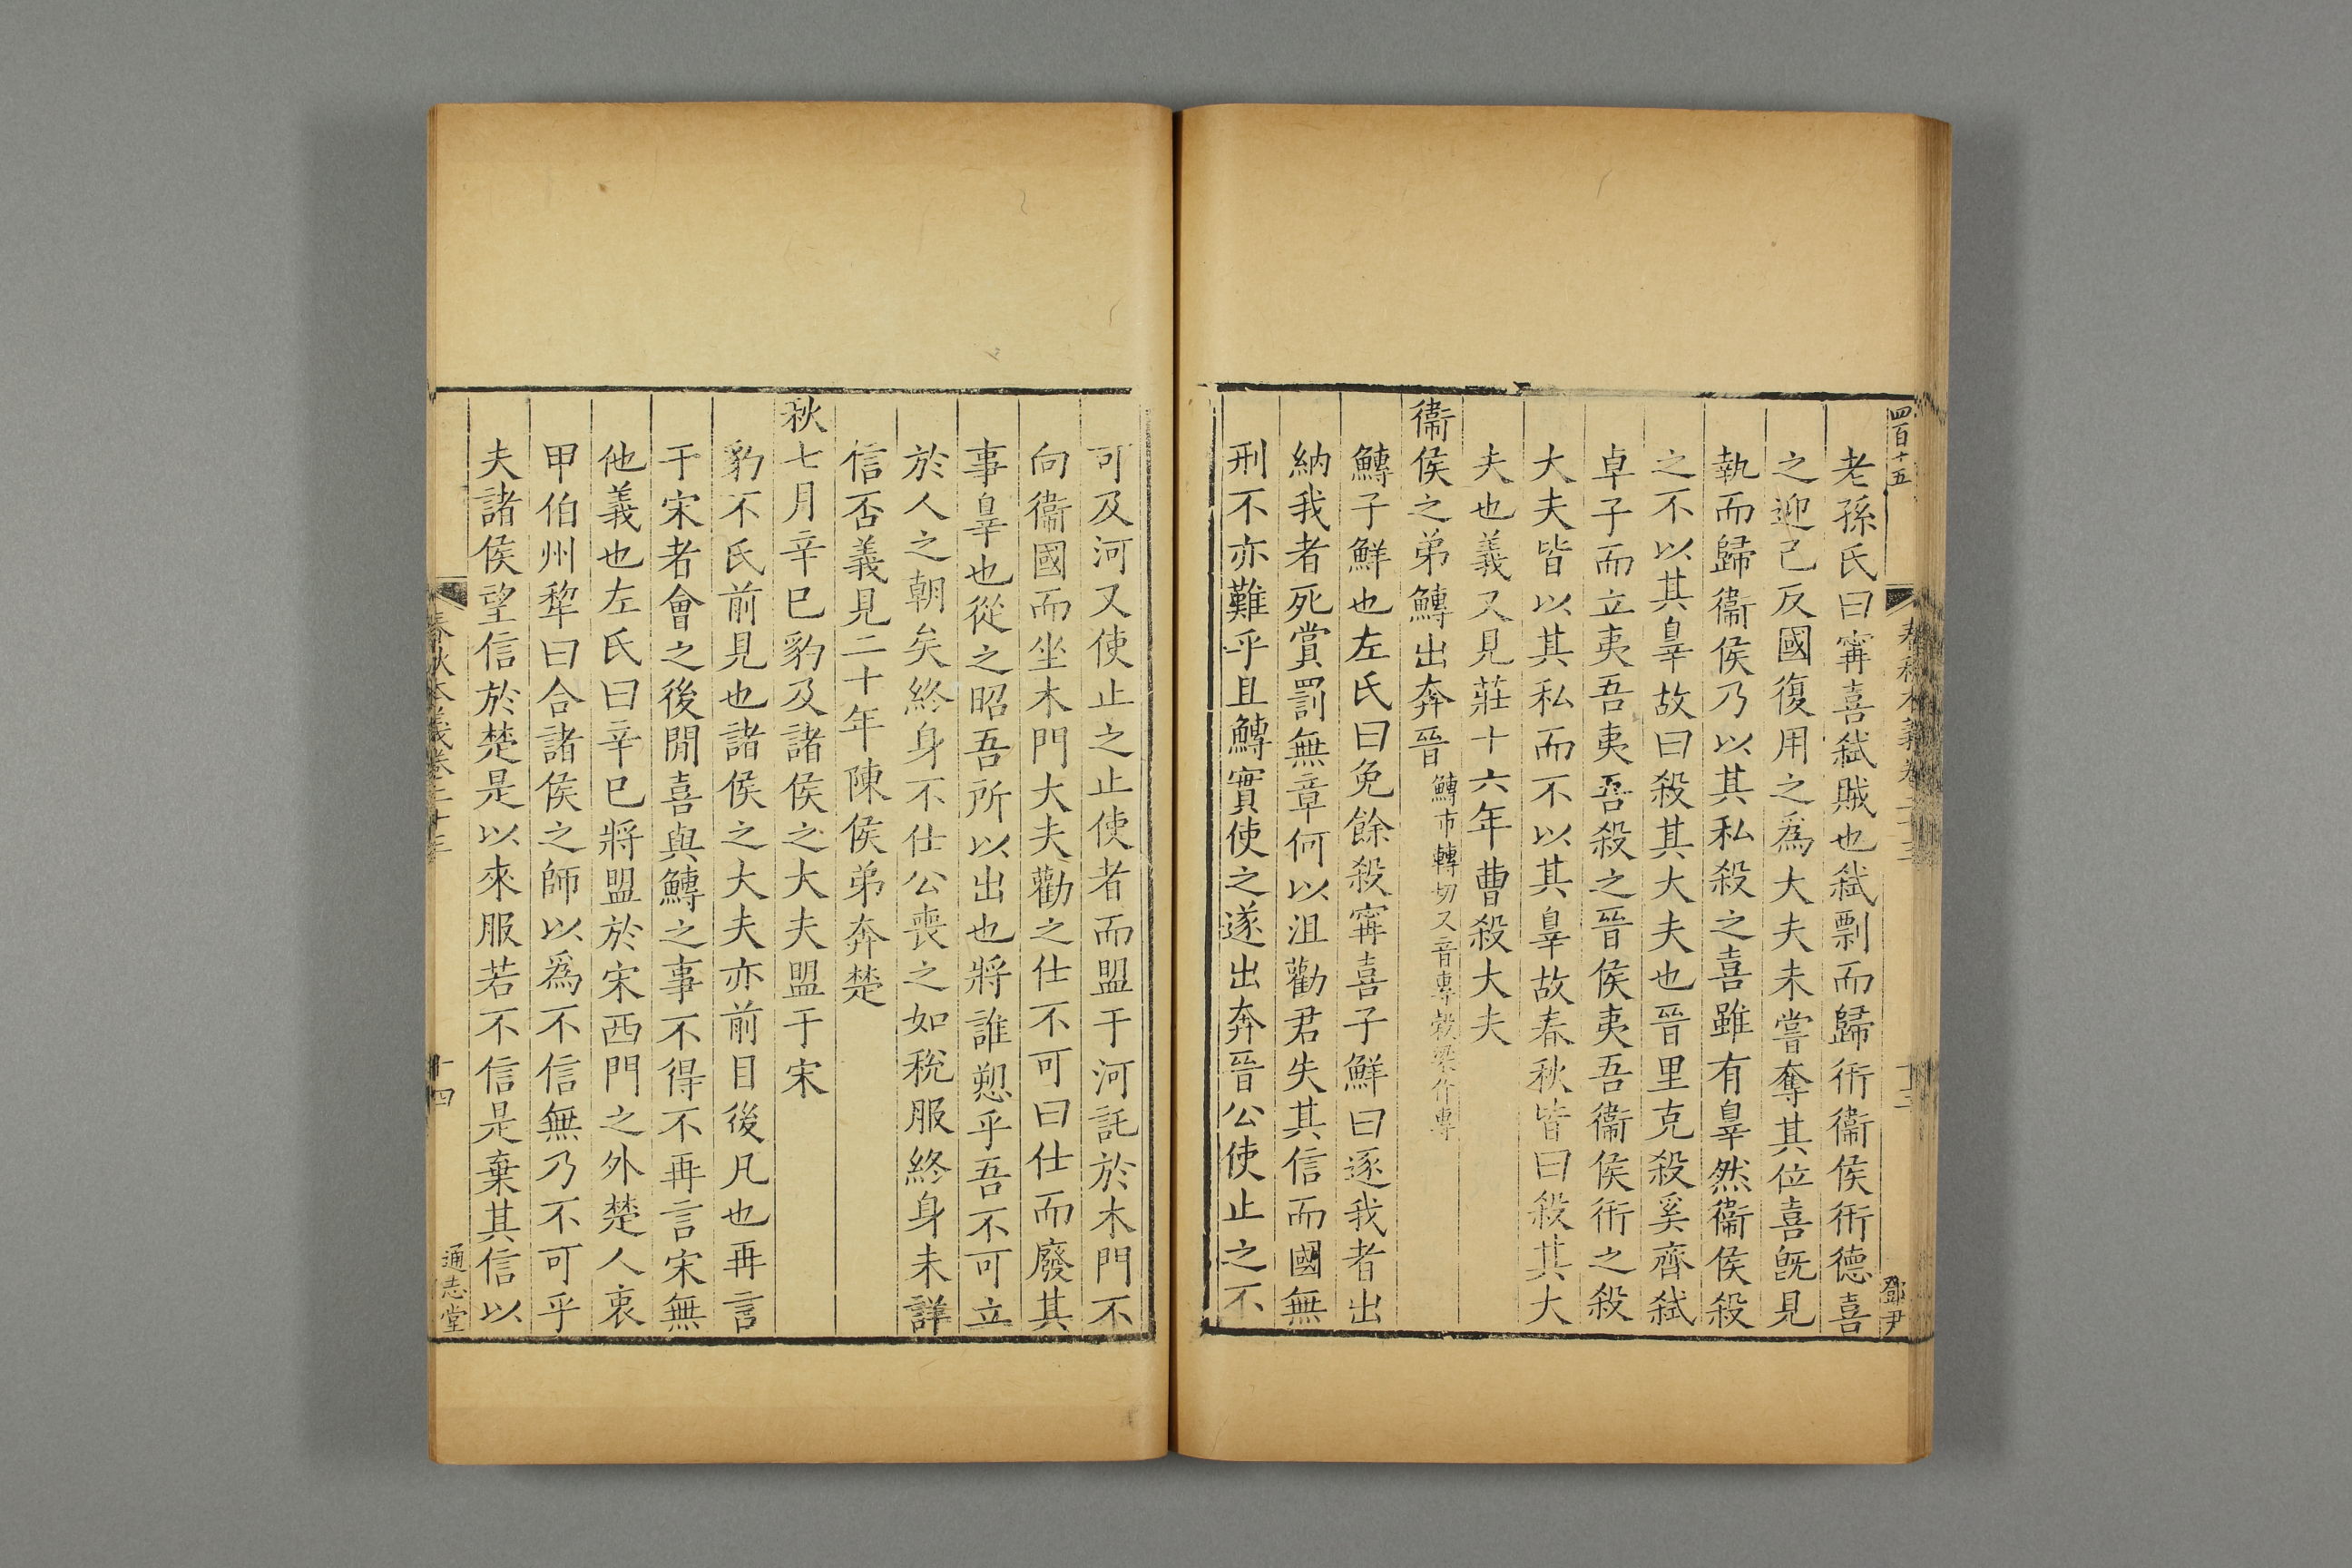 四百十五
春秋本義卷二十三
十三
鄧尹
老孫氏曰甯喜弑賊也弑剽而歸衎衞侯衎德喜
之迎己反國復用之爲大夫未嘗奪其位喜旣見
執而歸衞侯乃以其私殺之喜雖有辠然衞侯殺
之不以其辠故曰殺其大夫也晉里克殺奚齊弑
卓子而立夷吾夷吾殺之晉侯夷吾衞侯衎之殺
大夫皆以其私而不以其辠故春秋皆曰殺其大
夫也義又見莊十六年曹殺大夫
衞侯之弟鱄出奔晉鱄市轉切又音專穀梁作專
鱄子鮮也左氏曰免餘殺甯喜子鮮曰逐我者出
納我者死賞罰無章何以沮勸君失其信而國無
刑不亦難乎且鱄實使之遂出奔晉公使止之不
可及河又使止之止使者而盟于河託於木門不
向衞國而坐木門大夫勸之仕不可曰仕而廢其
事辠也從之昭吾所以出也將誰愬乎吾不可立
於人之朝矣終身不仕公喪之如稅服終身未詳
信否義見二十年陳侯弟奔楚
秋七月辛巳豹及諸侯之大夫盟于宋
豹不氏前見也諸侯之大夫亦前目後凡也再言
于宋者會之後閒喜與鱄之事不得不再言宋無
他義也左氏曰辛巳將盟於宋西門之外楚人衷
甲伯州犂曰合諸侯之師以爲不信無乃不可乎
夫諸侯望信於楚是以來服若不信是棄其信以
春秋本義卷二十三
十四
通志堂